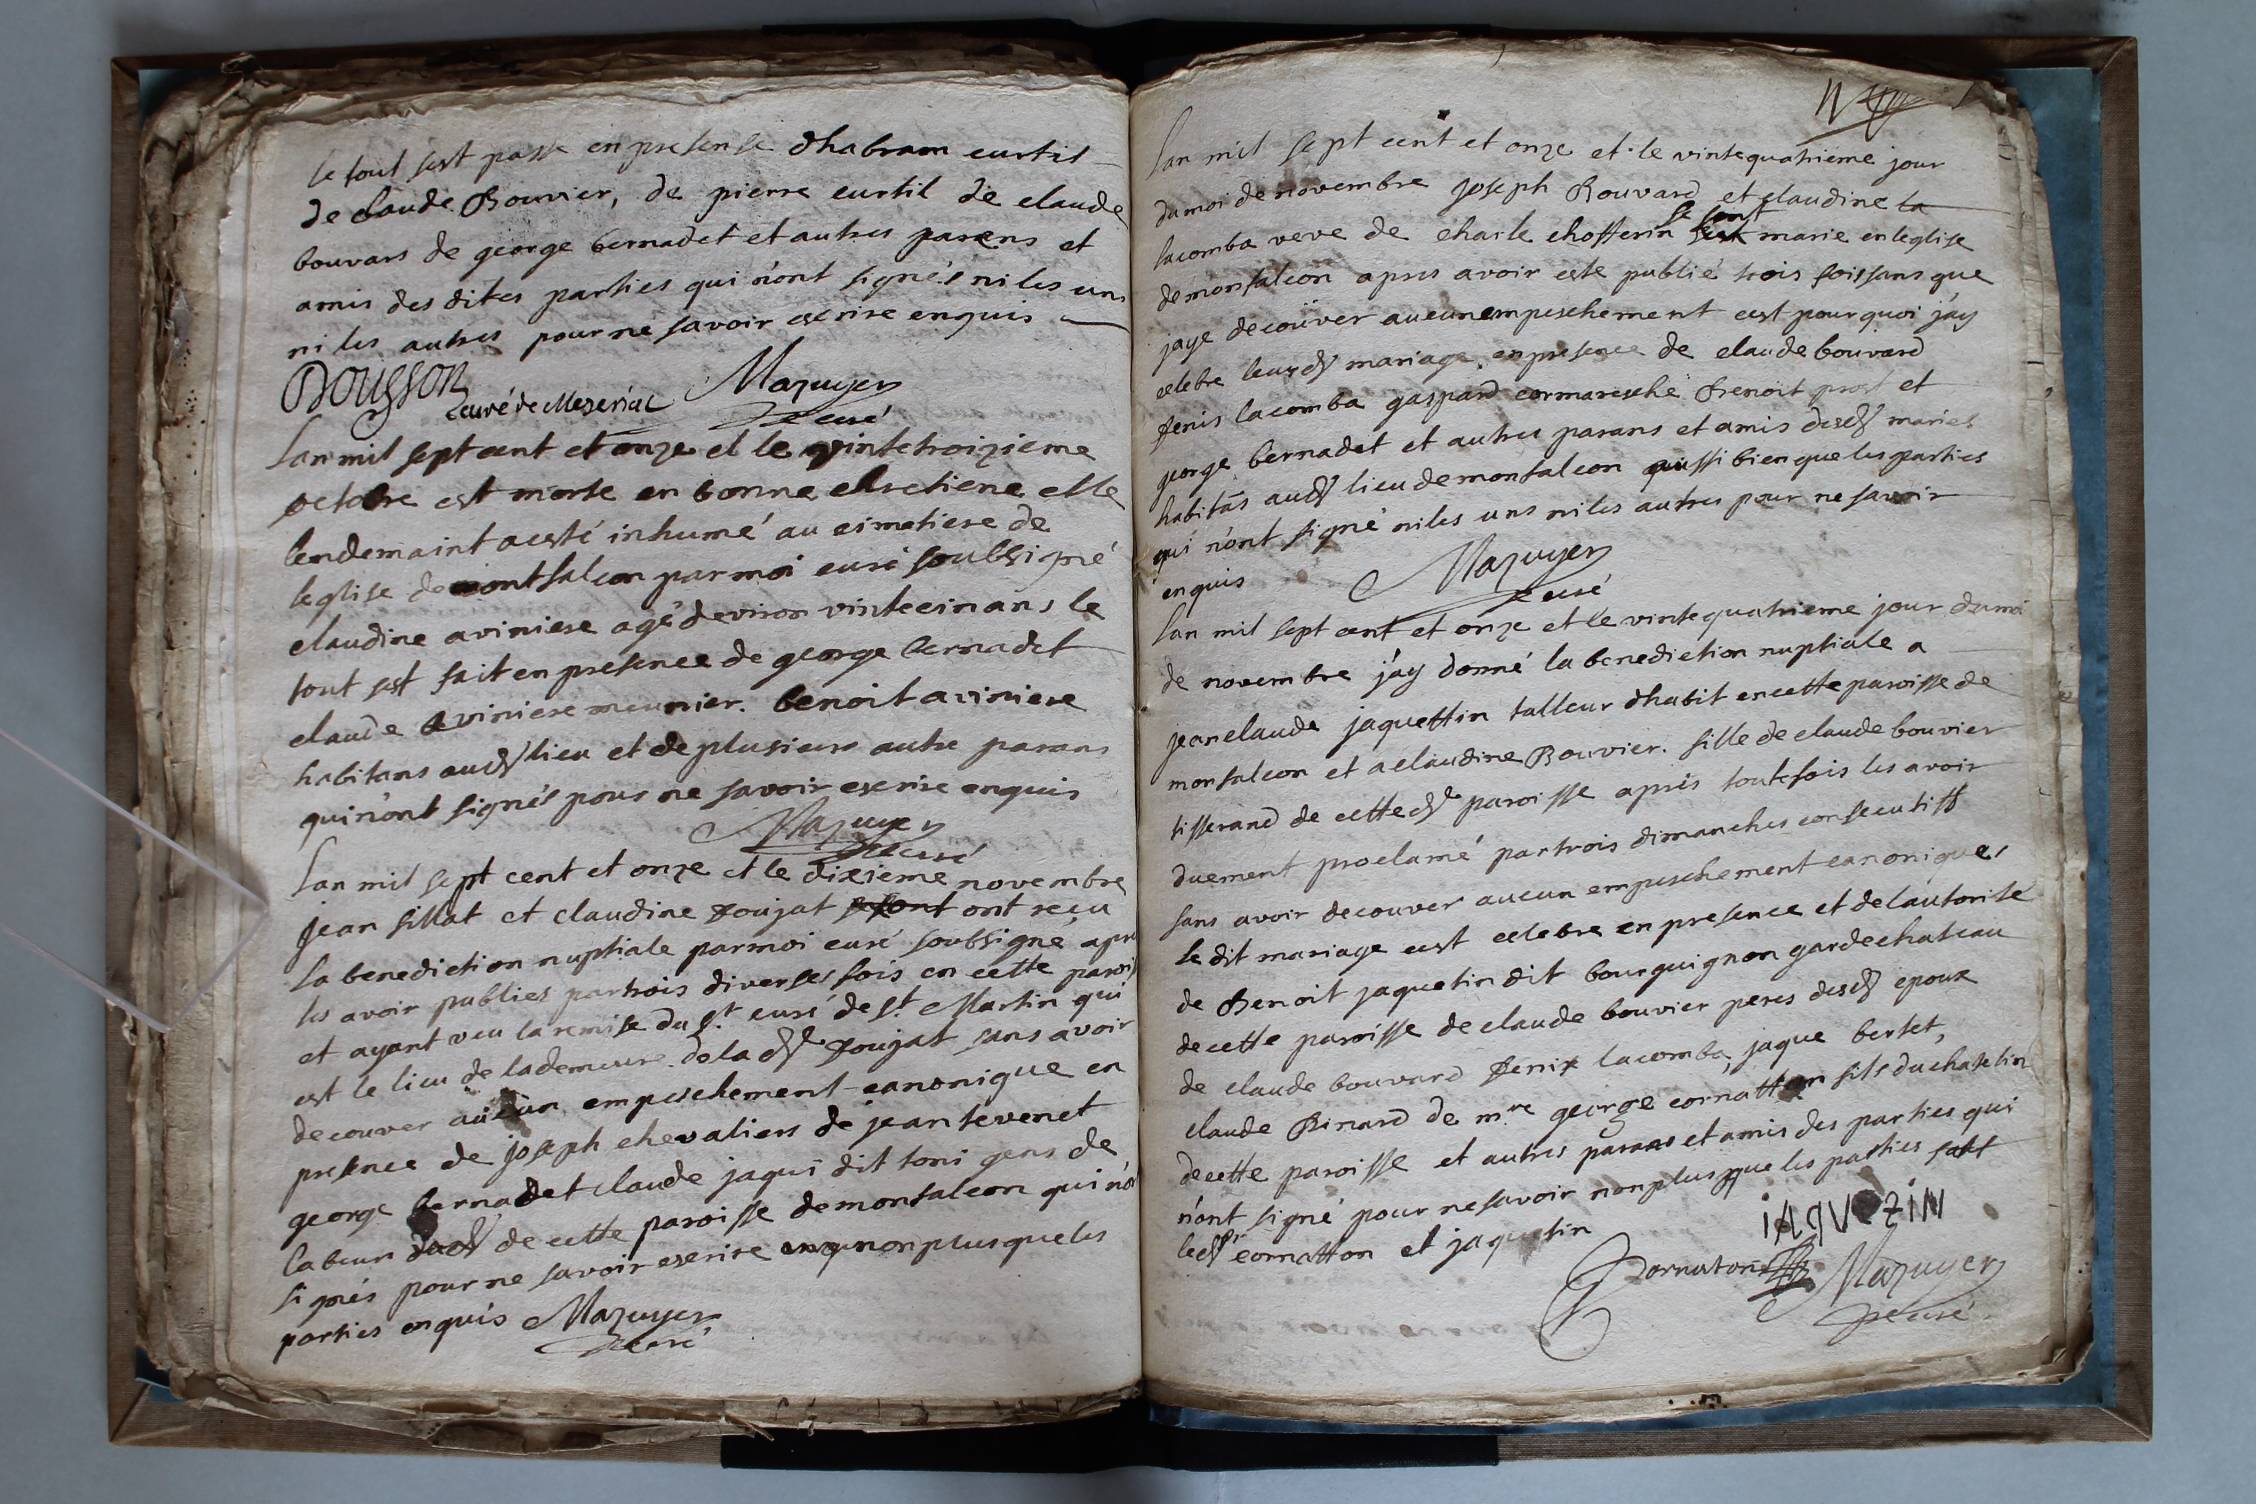 le tout sest passe en presense dhabram curtil
de claude Bouvier, de pierre curtil de claude
bouvars de george bernadet et autres parens et
amis des dites parties qui n'ont signés ni les uns
ni les autres pour ne savoir escrire enquis
Dousson curé de Mezeriac Mazuyer
curé
Lan mil sept cent et onze et le vintetroizieme
octobre est morte en bonne chretiene et le
lendemaint a esté inhumé au cimetiere de
leglise de montfalcon par moi curé soubsigné
claudine aviniere agé denviron vintecin ans le
tout sest fait en presence de george bernadet
claude aviniere meunier. benoit aviniere
habitans aud lieu et de plusieurs autre parans
qui n'ont signés pour ne savoir escrire enquis
Mazuyer
curé
Lan mil sept cent et onze et le dixieme novembre
jean sillat et claudine poujat se sont ont reçu
la benediction nuptiale par moi curé soubsigné apres
les avoir publies par trois diverses fois en cette parois
et ayant veu la remise du st curé de st Martin qui
est le lieu de la demeure de la dte poujat sans avoir
decouver aucun empeschement canonique en
presence de joseph chevaliers de jean tevenet
george bernadet claude jaqui dit toni gens de
labeur de cette paroisse de montfalcon qui n'on
signés pour ne savoir escrire non plus que les
parties enquis Mazuyer
curé
Lan mil sept cent et onze et le vintequatrieme jour
du moi de novembre joseph Bouvard et claudine la
se sont
lacomba veve de charle chofferin marie en leglise
de monfalcon apres avoir este publié trois fois sans que
jaye decouver aucun empeschement cest pourquoi j'ay
celebre leurd mariage en presence de claude bouvard
fenis lacomba gaspard cormaresche Benoit prost et
george bernadet et autres parans et amis desd maries
habitans aud lieu de monfalcon aussi bien que les parties
qui n'ont signé ni les uns ni les autres pour ne savoir
enquis Mazuyer
curé
Lan mil sept cent et onze et le vintequatrieme jour du moi
de novembre j'ay donné la benediction nuptiale a
jean claude jaquettin talleur dhabit en cette paroisse de
monfalcon et a claudine Bouvier. fille de claude bouvier
tisserand de cette dte paroisse aprés toutefois les avoir
duement proclamé par trois dimanches consecutifs
sans avoir decouver aucun empeschement canoniques
le dit mariage cest celebre en presence et de lautorité
de Benoit jaquetin dit bourguignon gardechateau
de cette paroisse de claude bouvier peres desd epoux
de claude bouvard fenix lacomba, jaque bertet,
claude Binard de mre george cornatton fils du chatelin
de cette paroisse et autres parans et amis des parties qui
n'ont signé pour ne savoir non plus que les parties sauf
led cornatton et jaquetin
iAqVeZiN
Cornaton Mazuyer
curé